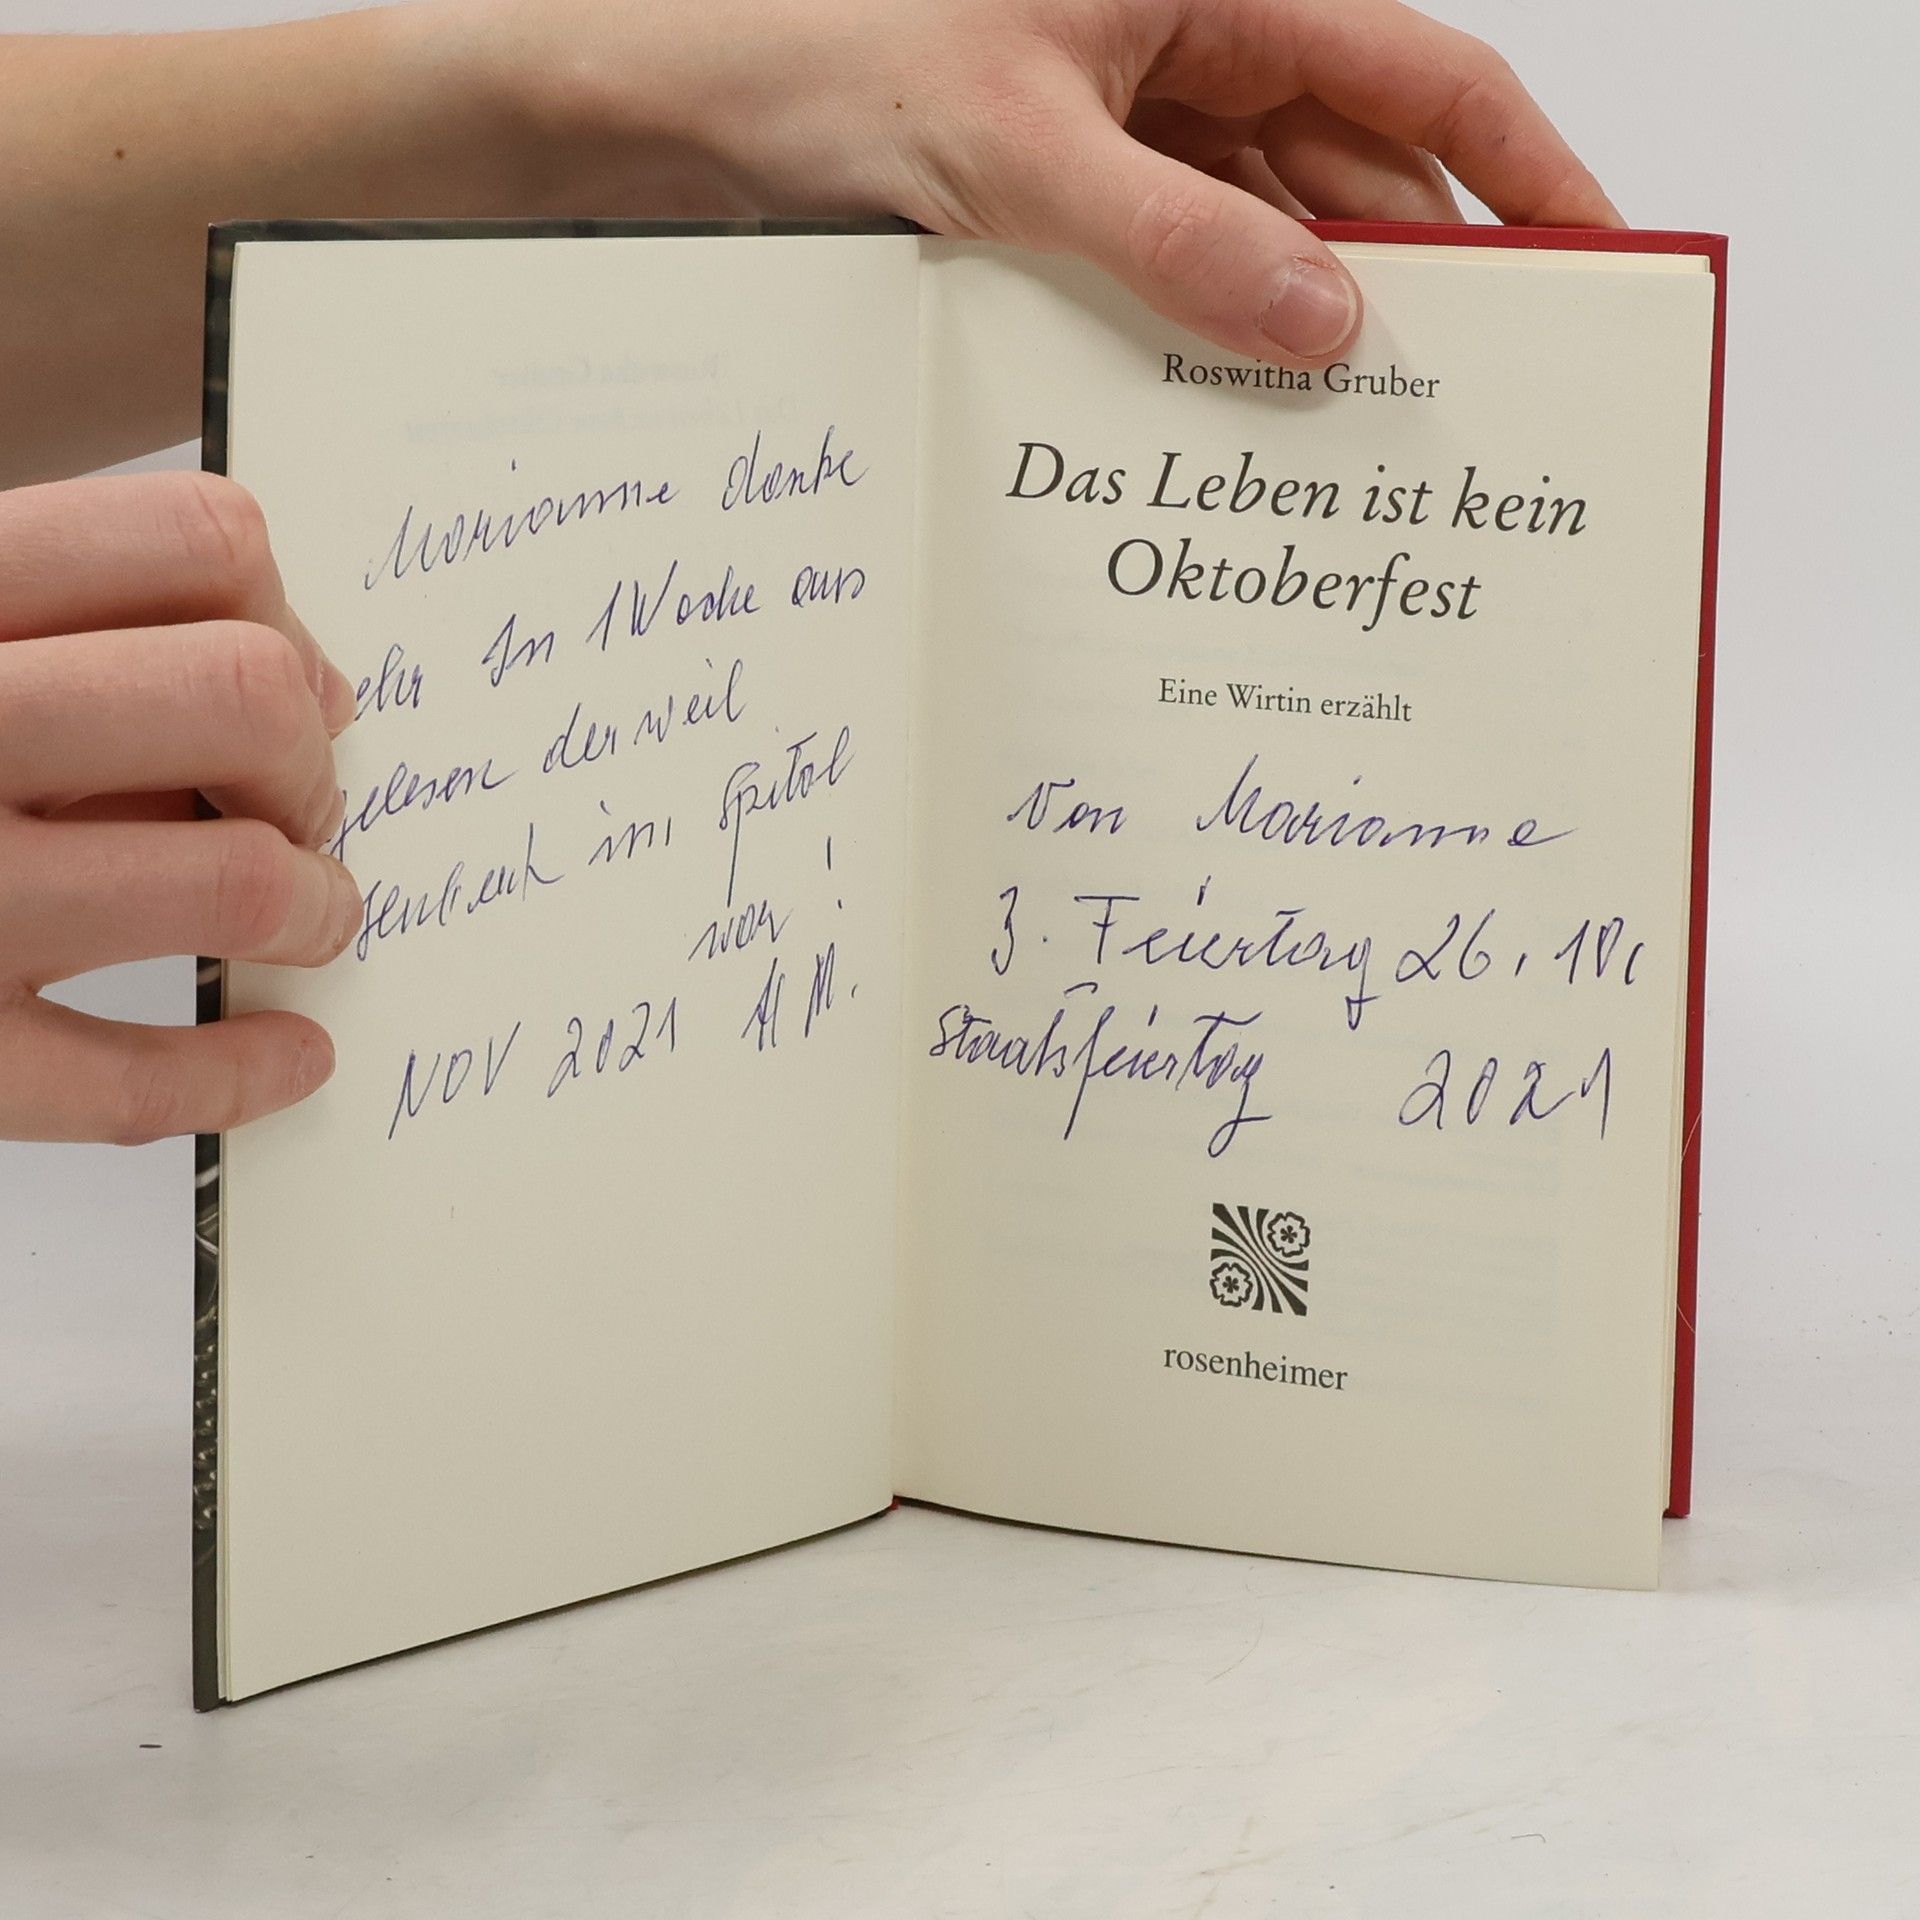 Marianne danke
ehr In 1 Woche aus
gelesen derweil
im Spital
war!
NOV 2021 H M.
Roswitha Gruber
Das Leben ist kein
Oktoberfest
Eine Wirtin erzählt
Von Marianne
3. Feiertag 26. 10.
Staatsfeiertag 2021
rosenheimer